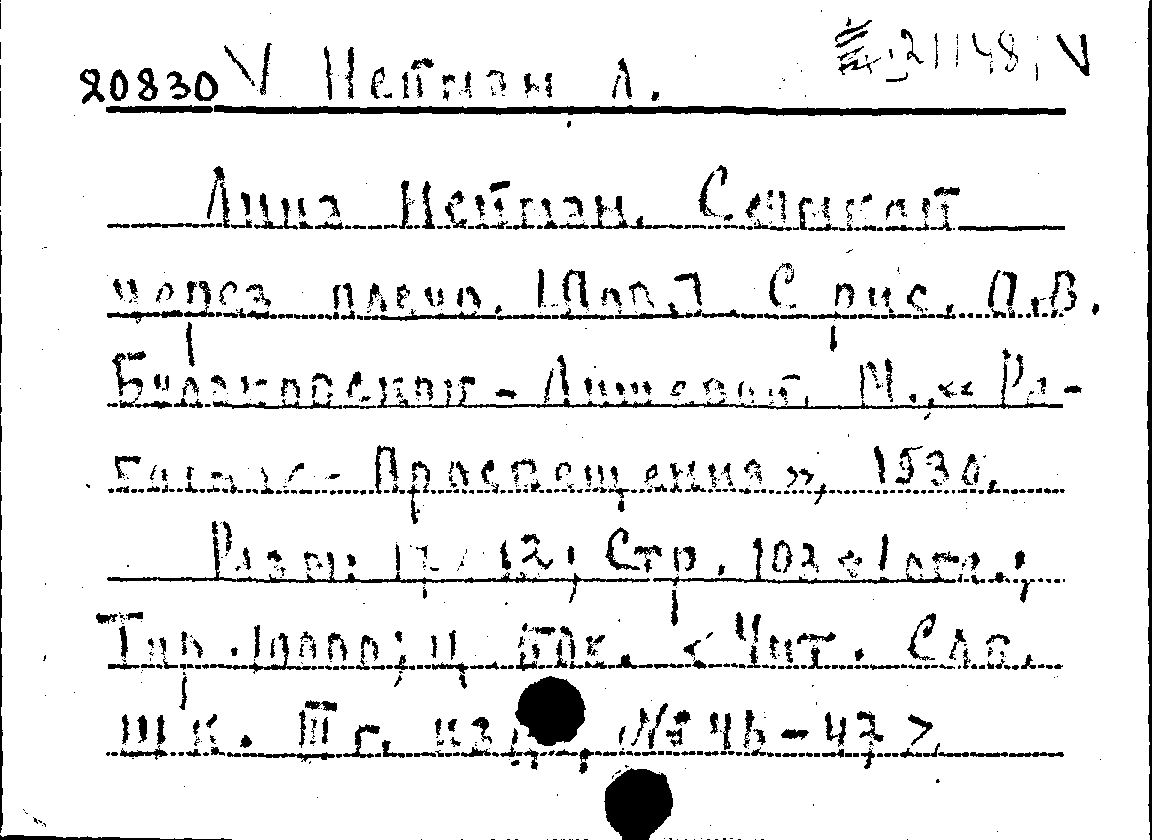 20830 V Нейман Л. 21148, V
Лина Нейман. Сечыкай
через плечо. [Пов.]. С рис. П. В.
Булаковской-Лишевой. М., «Ра-
ботник Просвещения», 1930.
Разм: 17/12; Стр. 103+1 огл.;
Тир. 10000; Ц. 50к. <Чит. Сло.
шк. III г. изд., №№ 46-47>.